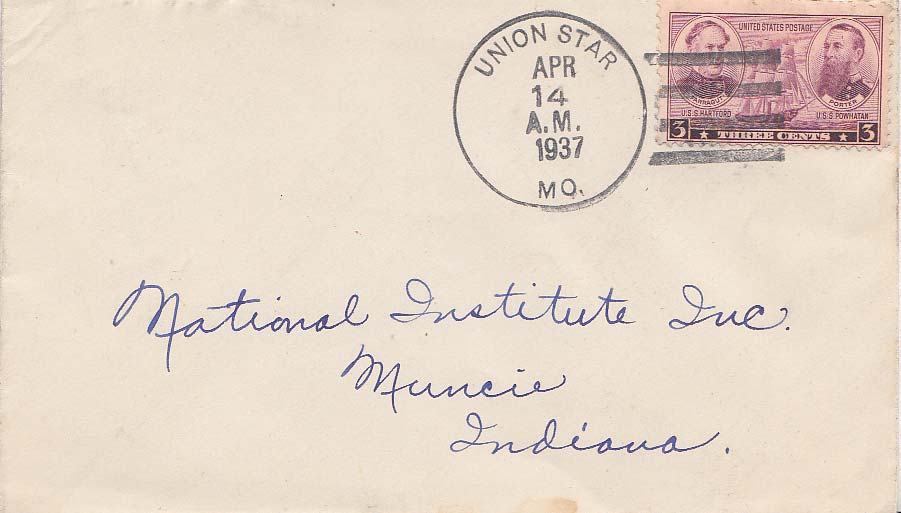 UNION STAR
APR
14
A.M.
1937
MO.
UNITED STATES POSTAGE
FARRAGUT
PORTER
U.S.S. HARTFORD
U.S.S. POWHATAN
3 THREE CENTS 3
National Institute Inc.
Muncie
Indiana.